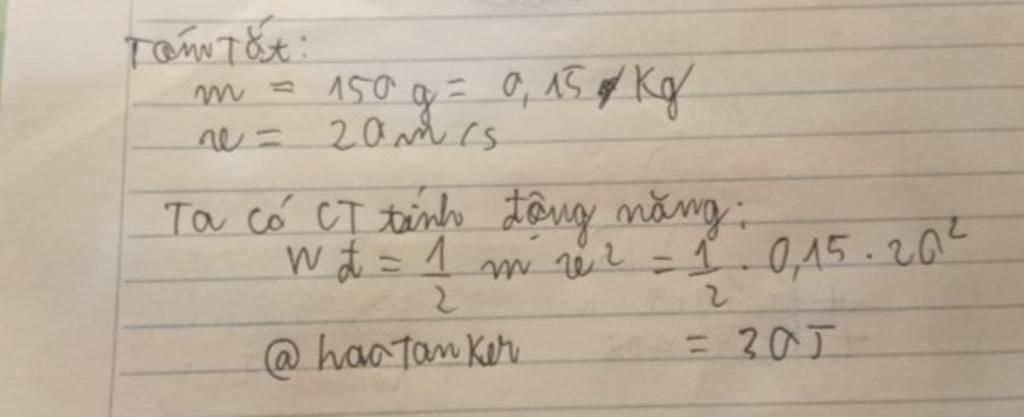 Tóm Tắt:
m = 150 g = 0,15 Kg
v = 20 m/s
Ta có CT tính động năng:
Wđ = 1/2 m v² = 1/2 . 0,15 . 20²
@haoTanKer = 30J